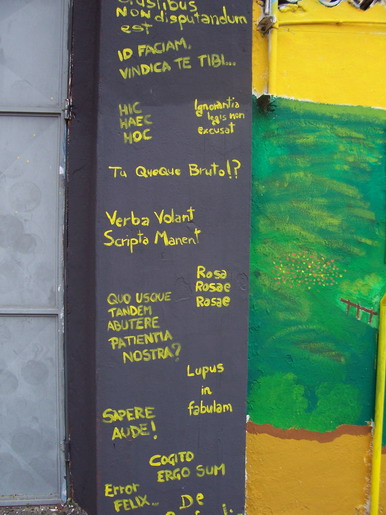 Gustibus
NON disputandum
est
ID FACIAM,
VINDICA TE TIBI...
HIC
HAEC
HOC
Ignorantia
legis non
excusat
Tu QuoQue Bruto!?
Verba Volant
Scripta Manent
Rosa
Rosae
Rosae
QUO USQUE
TANDEM
ABUTERE
PATIENTIA
NOSTRA?
Lupus
in
fabulam
SAPERE
AUDE!
COGITO
ERGO SUM
Error
FELIX...
De